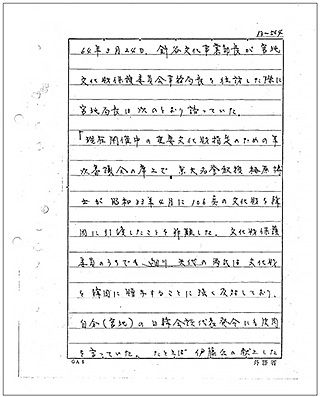 64年3月24日、針谷文化事業部長が宮地
文化財保護委員会事務局長を往訪した際に
宮地局長は次のとおり語っていた。
「現在開催中の重要文化財指定のための年
次審議会の席上で、京大名誉教授 梅原博
士が昭和33年4月に106点の文化財を韓
国に引渡したことを非難した。文化財保護
委員のうちでも、細川 矢代の両氏は文化財
を韓国に贈与することに強く反対しており、
自分(宮地)の日韓会談代表発令にも皮肉
を言っていた。たとえば伊藤公の献上した
GA-5
外務省